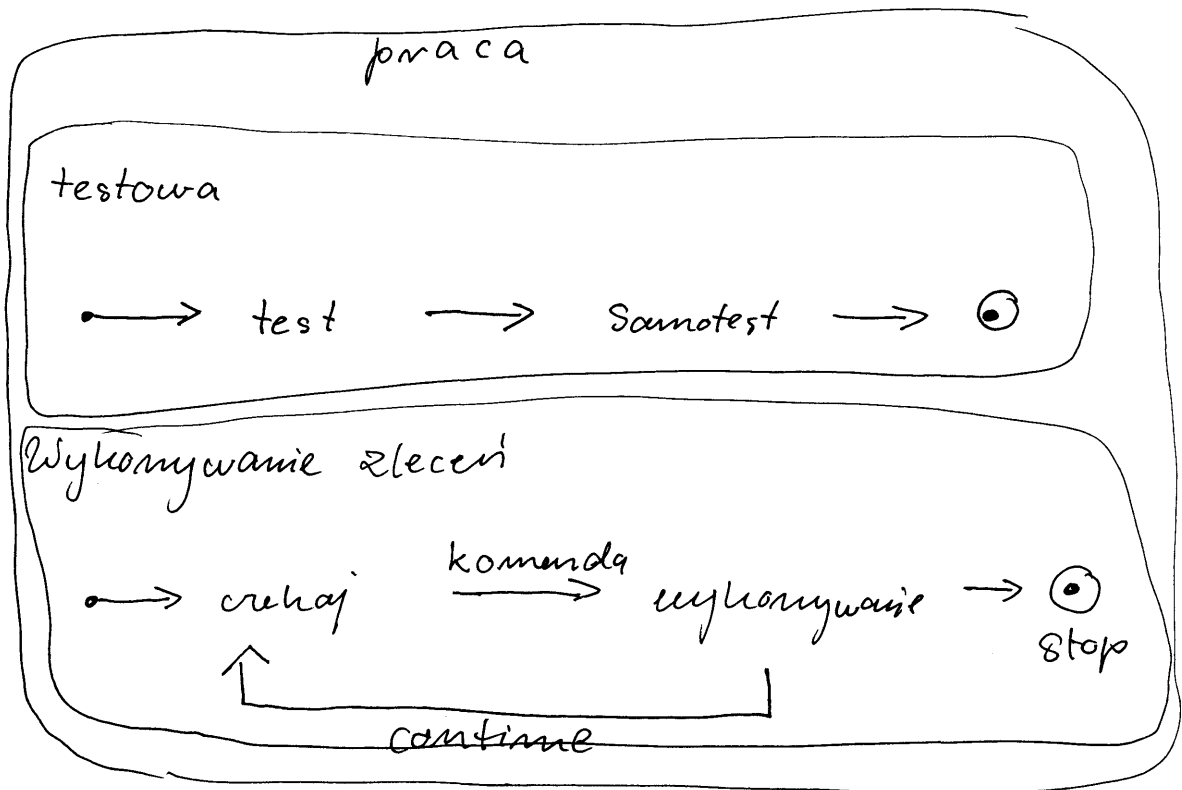 praca
testowa
test Samotest
Wykonywanie zleceń
komenda
czekaj wykonywanie
stop
continue